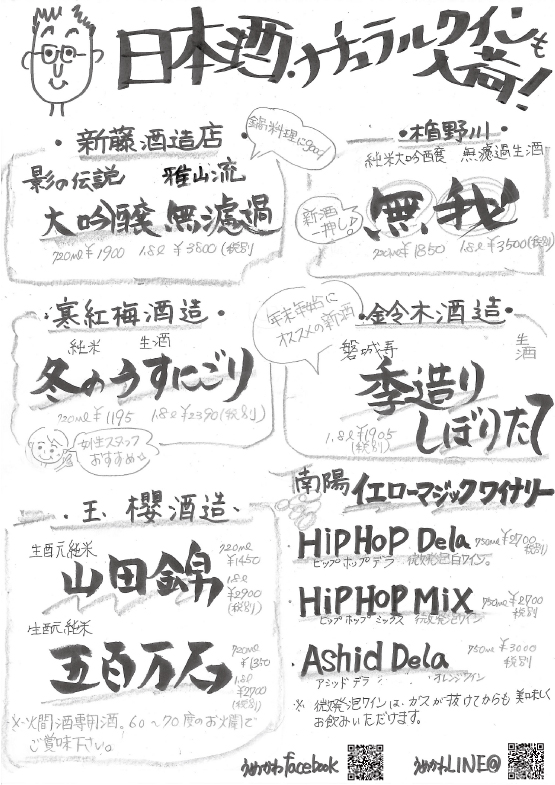 日本酒、ナチュラルワインも
入荷!
・新藤酒造店・
鍋料理にgood
影の伝説 雅山流
大吟醸 無濾過
720ml ¥1900 1.8ℓ ¥3800(税別)
・楯野川・
純米大吟醸 無濾過生酒
新酒
一押し♪
無我
720ml ¥1850 1.8ℓ ¥3500(税別)
・寒紅梅酒造・
純米 生酒
冬のうすにごり
720ml ¥1195 1.8ℓ ¥2390(税別)
女性スタッフ
おすすめ☆
年末年始に
オススメの新酒
・鈴木酒造・
磐城寿 生酒
季造り
しぼりたて
1.8ℓ ¥1905
(税別)
・玉櫻酒造・
生酛純米
山田錦
720ml
¥1450
1.8ℓ
¥2900
(税別)
生酛純米
五百万石
720ml
¥1350
1.8ℓ
¥2700
(税別)
※火間酒専用酒。60〜70度のお火間で
ご賞味下さい。
南陽 イエローマジックワイナリー
・HiPHOP Dela 750ml ¥2700
税別
ヒップホップデラ 微発泡白ワイン。
・HiPHOP MiX 750ml ¥2700
税別
ヒップホップミックス 微発泡ワイン
・Ashid Dela 750ml ¥3000
税別
アシッドデラ オレンジワイン
※ 微発泡ワインは、ガスが抜けてからも美味しく
お飲みいただけます。
うめかわfacebook うめかわLINE@